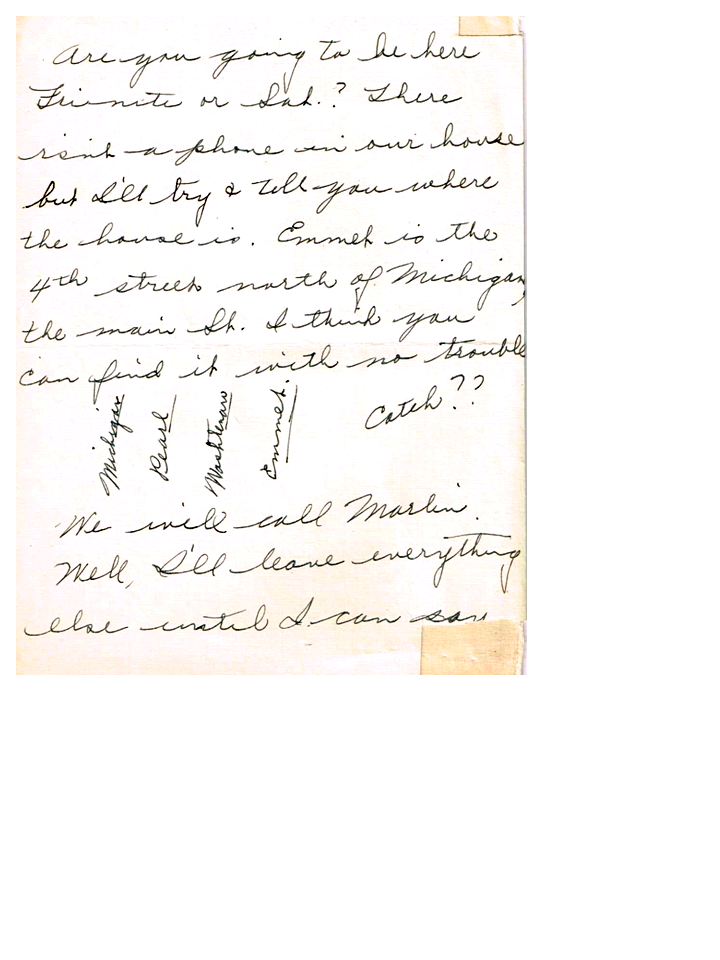 Are you going to be here
Fri nite or Sat.? There
isn't a phone in our house
but I'll try & tell you where
the house is. Emmet is the
4th street north of Michigan,
the main St. I think you
can find it with no trouble
Catch??
Michigan
Pearl
Washtenaw
Emmet.
We will call Marlin.
Well, I'll leave everything
else until I can